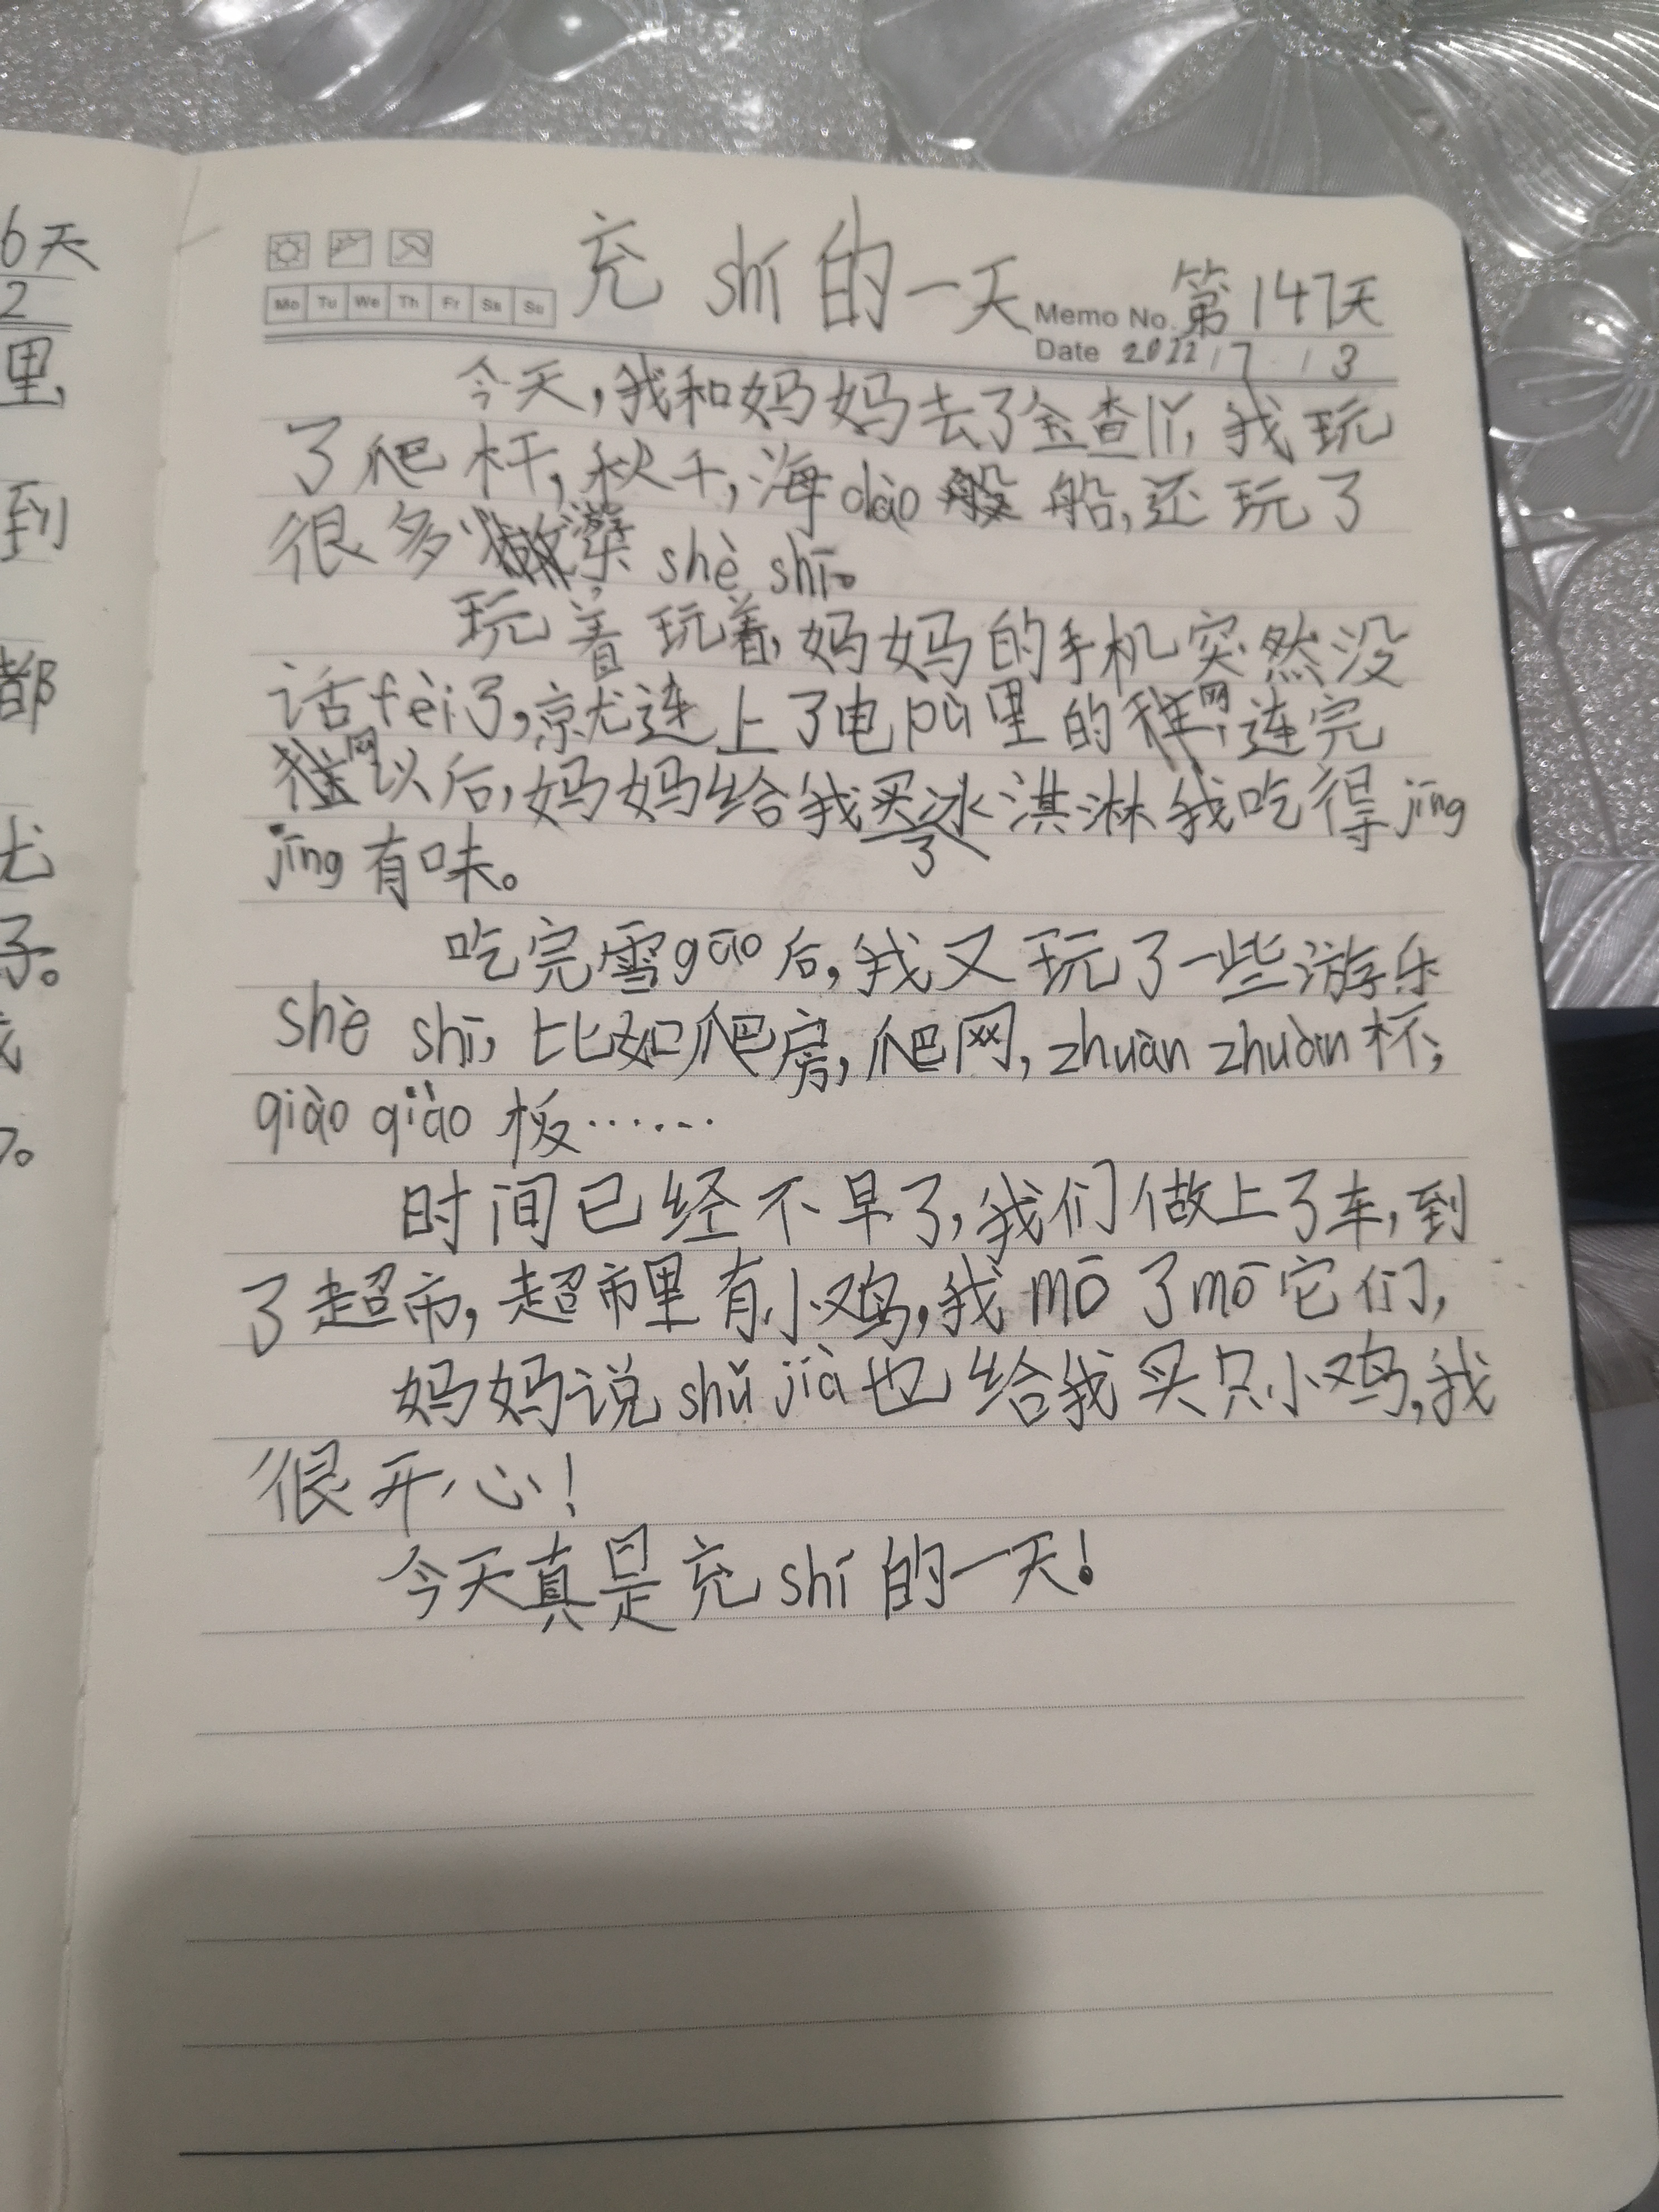 充 shí 的一天
Mo Tu We Th Fr Sa Su
Memo No. 第147天
Date 2022 / 7 / 3
今天,我和妈妈去了金查丫,我玩
了爬杆,秋千,海dào船,还玩了
很多游乐shè shī。
玩着玩着,妈妈的手机突然没
话fèi了,就连上了电pù里的网,连完
网以后,妈妈给我买了冰淇淋我吃得jīng
jīng有味。
吃完雪gāo后,我又玩了一些游乐
shè shī,比如爬房,爬网,zhuàn zhuàn杯,
qiào qiào板……
时间已经不早了,我们做上了车,到
了超市,超市里有小鸡,我mō了mō它们,
妈妈说shǔ jià也给我买只小鸡,我
很开心!
今天真是充shí的一天!
6天
2
里,
到
都
尤
子。